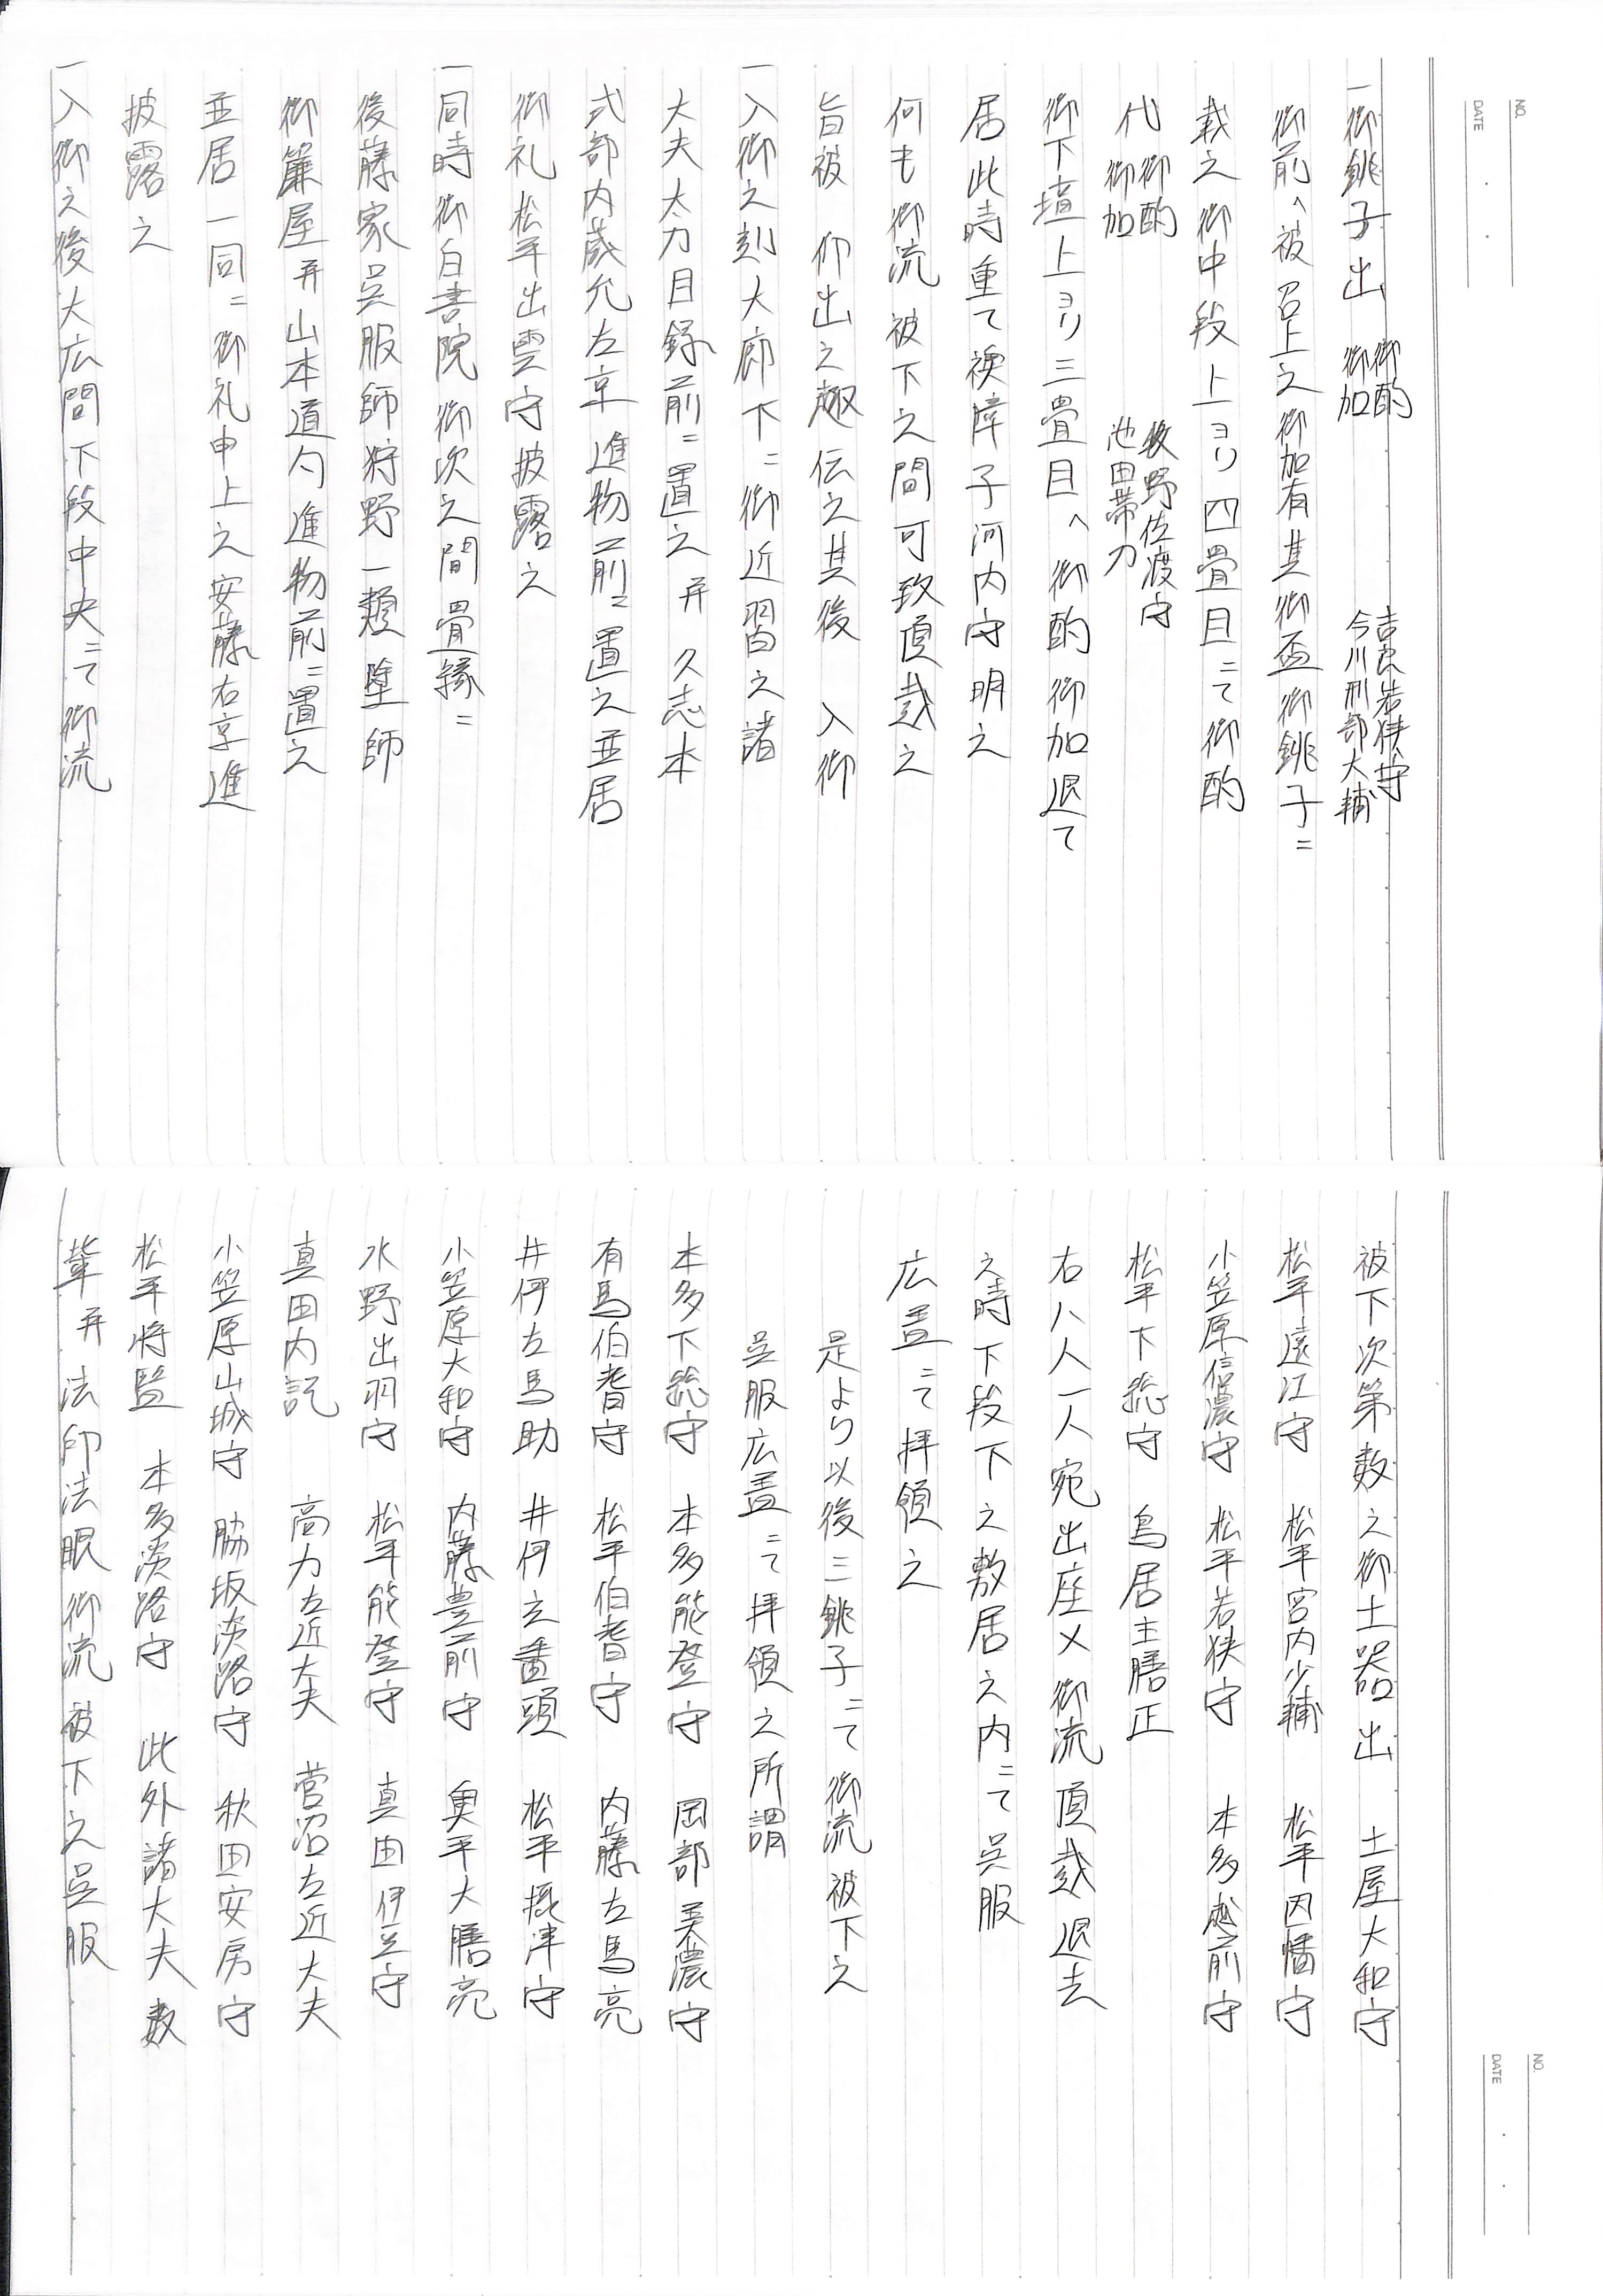 NO.
DATE
一御銚子出 御酌 吉良若狭守
御加 今川刑部大輔
御前へ被召上之御加有其御盃御銚子ニ
載之御中段上ヨリ四畳目ニて御酌
代 御酌 牧野佐渡守
御加 池田帯刀
御下壇上ヨリ三畳目へ御酌御加退て
居此時重て襖障子河内守明之
何も御流被下之間可致頂戴之
旨被 仰出之趣伝之其後 入御
一入御之刻大廊下ニ御近習之諸
大夫太刀目録前ニ置之并 久志本
式部内蔵允左京進物前ニ置之並居
御礼松平出雲守披露之
一同時御白書院御次之間畳縁ニ
後藤家呉服師狩野一類塗師
御簾屋并山本道勺進物前ニ置之
並居一同ニ御礼申上之安藤右京進
披露之
一入御之後大広間下段中央ニて御流
NO.
DATE
被下次第数之御土器出 土屋大和守
松平遠江守 松平宮内少輔 松平因幡守
小笠原信濃守 松平若狭守 本多越前守
松平下総守 鳥居主膳正
右八人一人宛出座〆御流頂戴退去
之時下段下之敷居之内ニて呉服
広蓋ニて拝領之
是より以後三銚子ニて御流被下之
呉服広蓋ニて拝領之所謂
本多下総守 本多能登守 岡部美濃守
有馬伯耆守 松平伯耆守 内藤左馬亮
井伊左馬助 井伊之番頭 松平摂津守
小笠原大和守 内藤豊前守 奥平大膳亮
水野出羽守 松平能登守 真田伊豆守
真田内記 高力左近大夫 菅沼左近大夫
小笠原山城守 脇坂淡路守 秋田安房守
松平将監 本多淡路守 此外諸大夫数
輩并法印法眼御流被下之呉服